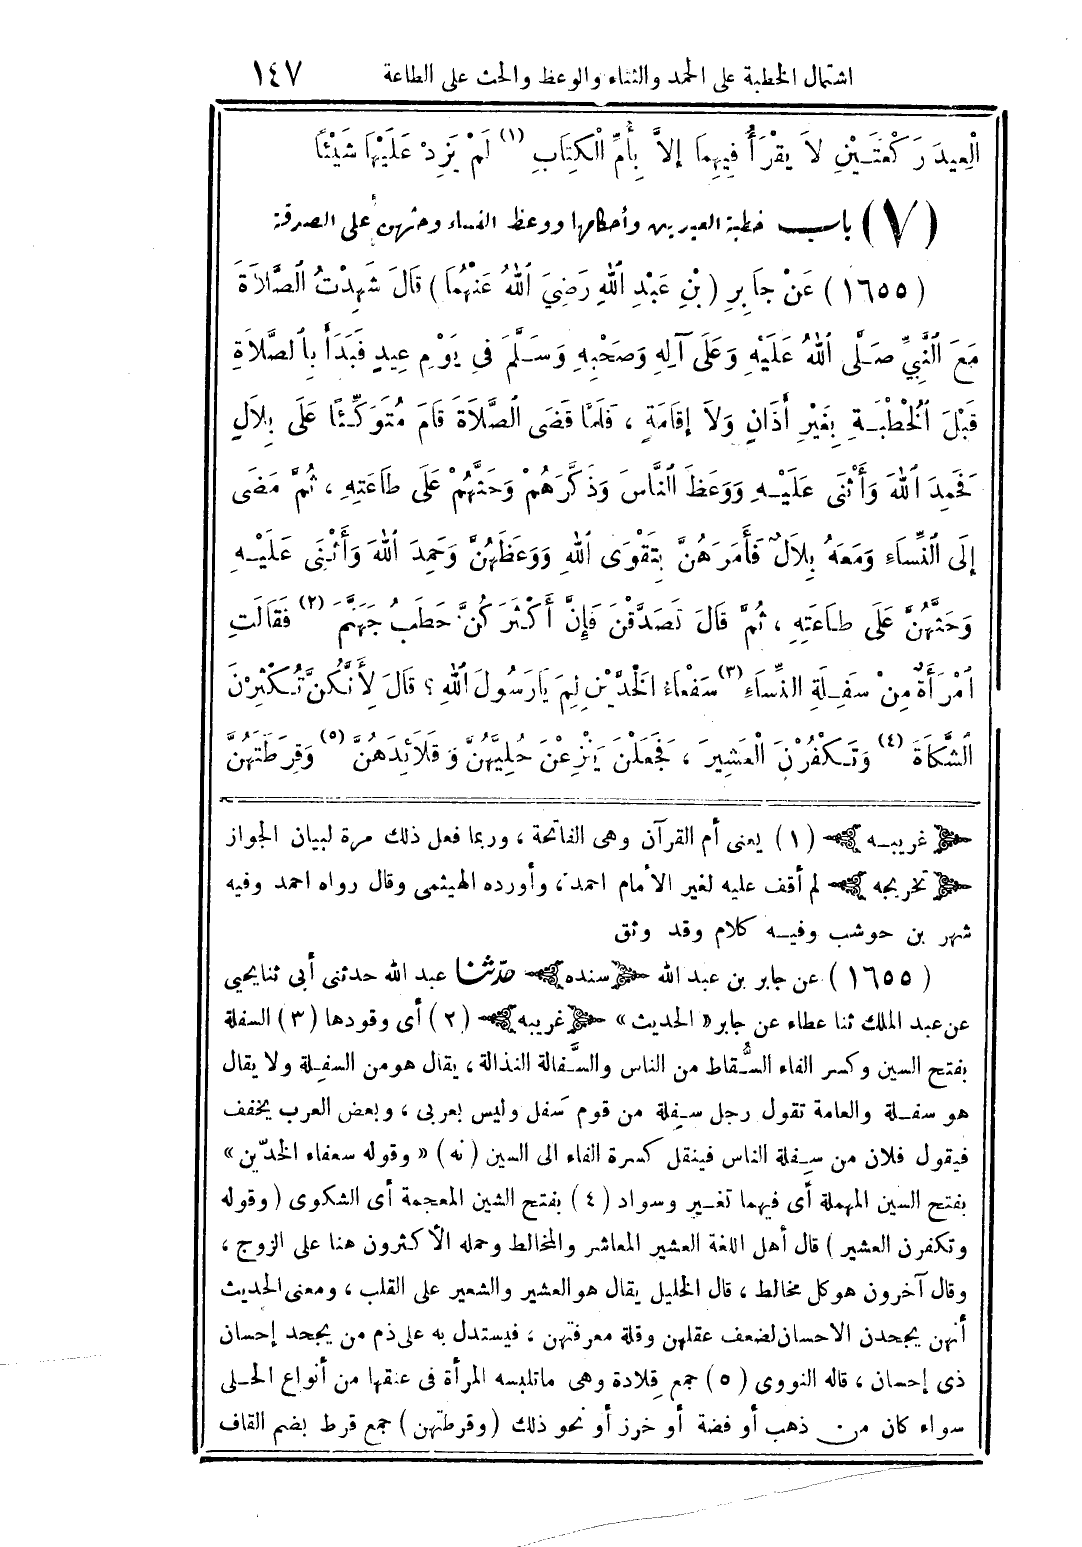 اشتمال الخطبة على الحمد والثناء والوعظ والحث على الطاعة ١٤٧
الْعِيدَ رَكْعَتَيْنِ لاَ يَقْرَأُ فِيهِمَا إلاَّ بِأُمِّ الْكِتَابِ (١) لَمْ يَزِدْ عَلَيْهَا شَيْئًا
(٧) باب خطبة العيدين وأحكامها ووعظ النساء وحثهن على الصدقة
(١٦٥٥) عَنْ جَابِرِ (بْنِ عَبْدِ اللهِ رَضِيَ اللهُ عَنْهُمَا) قَالَ شَهِدْتُ الصَّلاَةَ
مَعَ النَّبِيِّ صَلَّى اللهُ عَلَيْهِ وَعَلَى آلِهِ وَصَحْبِهِ وَسَلَّمَ فِي يَوْمِ عِيدٍ فَبَدَأَ بِالصَّلاَةِ
قَبْلَ الْخُطْبَةِ بِغَيْرِ أَذَانٍ وَلاَ إقَامَةٍ ، فَلَمَّا قَضَى الصَّلاَةَ قَامَ مُتَوَكِّئًا عَلَى بِلاَلٍ
فَحَمِدَ اللهَ وَأَثْنَى عَلَيْهِ وَوَعَظَ النَّاسَ وَذَكَّرَهُمْ وَحَثَّهُمْ عَلَى طَاعَتِهِ ، ثُمَّ مَضَى
إلَى النِّسَاءِ وَمَعَهُ بِلاَلٌ فَأَمَرَهُنَّ بِتَقْوَى اللهِ وَوَعَظَهُنَّ وَحَمِدَ اللهَ وَأَثْنَى عَلَيْهِ
وَحَثَّهُنَّ عَلَى طَاعَتِهِ ، ثُمَّ قَالَ تَصَدَّقْنَ فَإِنَّ أَكْثَرَكُنَّ حَطَبُ جَهَنَّمَ (٢) فَقَالَتِ
امْرَأَةٌ مِنْ سَفِلَةِ النِّسَاءِ (٣) سَفْعَاءُ الْخَدَّيْنِ لِمَ يَارَسُولَ اللهِ ؟ قَالَ لِأَنَّكُنَّ تُكْثِرْنَ
الشَّكَاةَ (٤) وَتَكْفُرْنَ الْعَشِيرَ ، فَجَعَلْنَ يَنْزِعْنَ حُلِيَّهُنَّ وَقَلاَئِدَهُنَّ (٥) وَقِرَطَتَهُنَّ
غريبه (١) يعنى أم القرآن وهى الفاتحة ، وربما فعل ذلك مرة لبيان الجواز
تخريجه لم أقف عليه لغير الأمام احمد ، وأورده الهيثمى وقال رواه احمد وفيه
شهر بن حوشب وفيه كلام وقد وثق
(١٦٥٥) عن جابر بن عبد الله سنده حدثنا عبد الله حدثنى أبى ثنا يحيى
عن عبد الملك ثنا عطاء عن جابر « الحديث » غريبه (٢) أى وقودها (٣) السفلة
بفتح السين وكسر الفاء السُّقاط من الناس والسَّفالة النذالة ، يقال هو من السفِلة ولا يقال
هو سفلة والعامة تقول رجل سفِلة من قوم سَفل وليس بعربى ، وبعض العرب يخفف
فيقول فلان من سِفلة الناس فينقل كسرة الفاء الى السين (نه) « وقوله سعفاء الخدّين »
بفتح السين المهملة أى فيهما تغير وسواد (٤) بفتح الشين المعجمة أى الشكوى (وقوله
وتكفرن العشير) قال أهل اللغة العشير المعاشر والمخالط وحمله الأكثرون هنا على الزوج ،
وقال آخرون هو كل مخالط ، قال الخليل يقال هو العشير والشعير على القلب ، ومعنى الحديث
أنهن يجحدن الاحسان لضعف عقلهن وقلة معرفتهن ، فيستدل به على ذم من يجحد إحسان
ذى إحسان ، قاله النووى (٥) جمع قِلادة وهى ماتلبسه المرأة فى عنقها من أنواع الحلى
سواء كان من ذهب أو فضة أو خرز أو نحو ذلك (وقرطتهن) جمع قرط بضم القاف